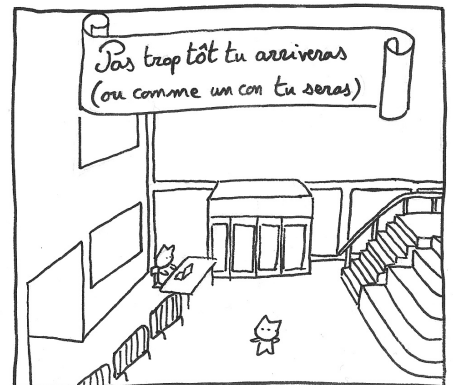 Pas trop tôt tu arriveras
(ou comme un con tu seras)